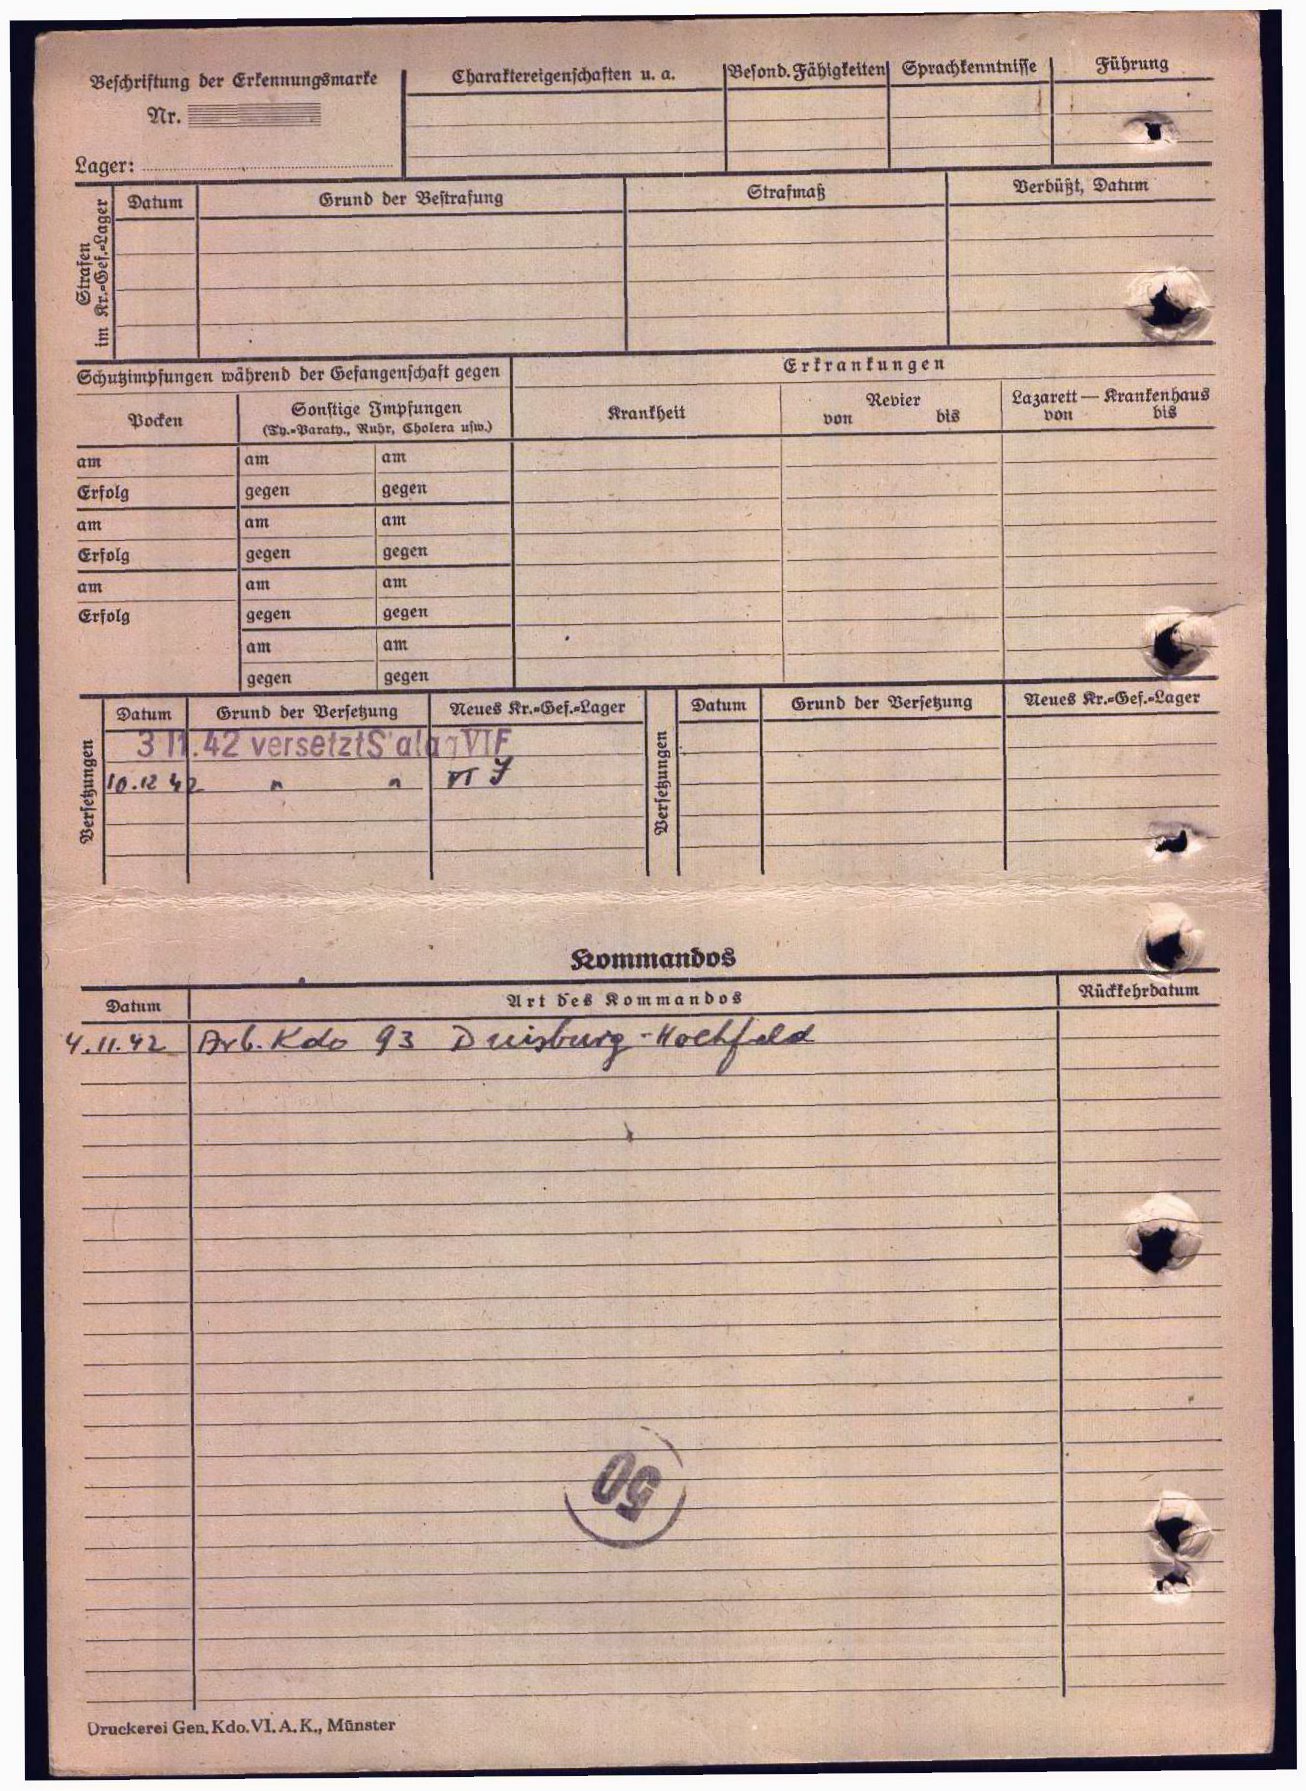 Beschriftung der Erkennungsmarke
Nr.
Lager:
Charaktereigenschaften u. a.
Besond. Fähigkeiten
Sprachkenntnisse
Führung
Strafen im Kr.=Gef.=Lager
Datum
Grund der Bestrafung
Strafmaß
Verbüßt, Datum
Schutzimpfungen während der Gefangenschaft gegen
Erkrankungen
Pocken
Sonstige Impfungen
(Ty.=Paraty., Ruhr, Cholera usw.)
Krankheit
Revier
von bis
Lazarett — Krankenhaus
von bis
am am am
Erfolg gegen gegen
am am am
Erfolg gegen gegen
am am am
Erfolg gegen gegen
am am
gegen gegen
Versetzungen
Datum Grund der Versetzung Neues Kr.=Gef.=Lager
Versetzungen
Datum Grund der Versetzung Neues Kr.=Gef.=Lager
3 11.42 versetzt Stalag VI F
10.12 42 " " VI J
Kommandos
Datum Art des Kommandos Rückkehrdatum
4.11.42 Arb. Kdo 93 Duisburg-Hochfeld
50
Druckerei Gen. Kdo. VI. A. K., Münster